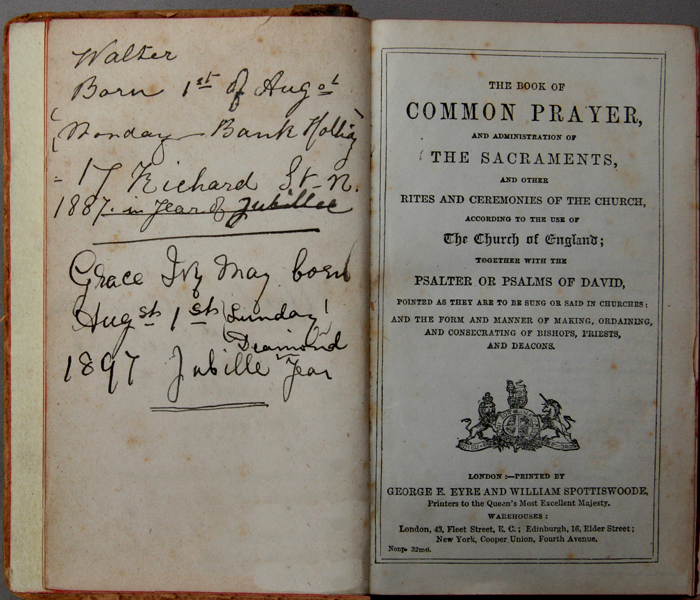 Walter
Born 1st of Augst
(Monday - Bank Holliday
- 17 Richard St - N.
1887 in Year of Jubillee
Grace Ivy May born
Augst 1st (Sunday)
Diamond
1897 Jubille Year
THE BOOK OF
COMMON PRAYER,
AND ADMINISTRATION OF
THE SACRAMENTS,
AND OTHER
RITES AND CEREMONIES OF THE CHURCH,
ACCORDING TO THE USE OF
The Church of England;
TOGETHER WITH THE
PSALTER OR PSALMS OF DAVID,
POINTED AS THEY ARE TO BE SUNG OR SAID IN CHURCHES:
AND THE FORM AND MANNER OF MAKING, ORDAINING,
AND CONSECRATING OF BISHOPS, PRIESTS,
AND DEACONS.
LONDON:—PRINTED BY
GEORGE E. EYRE AND WILLIAM SPOTTISWOODE,
Printers to the Queen's Most Excellent Majesty.
WAREHOUSES:
London, 43, Fleet Street, E. C.; Edinburgh, 16, Elder Street;
New York, Cooper Union, Fourth Avenue.
Nonp. 32mo.